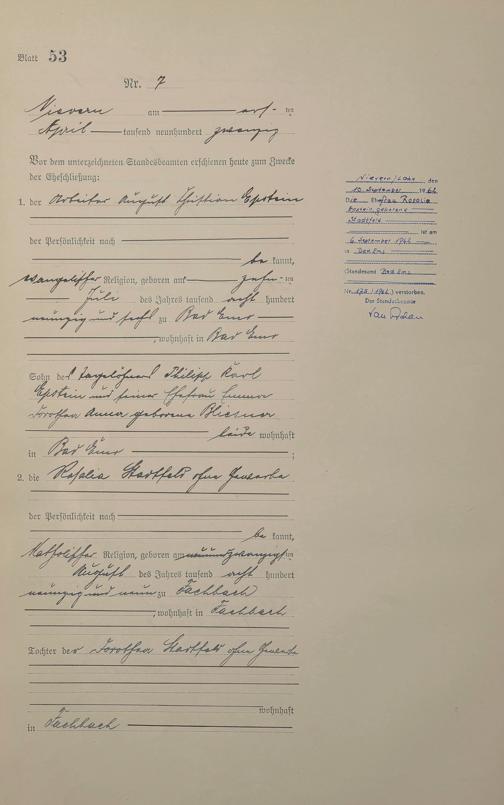 Blatt 53
Nr. 7
Nievern am elf-ten
April tausend neunhundert zwanzig
Vor dem unterzeichneten Standesbeamten erschienen heute zum Zwecke
der Eheschließung:
1. der Arbeiter August Christian Epstein
der Persönlichkeit nach
be kannt,
evangelischer Religion, geboren am zehn-ten
Juli des Jahres tausend acht hundert
neunzig und sechs zu Bad Ems
, wohnhaft in Bad Ems
Sohn des Tagelöhners Philipp Karl
Epstein und seiner Ehefrau Emma
Dorothea Anna geborene
beide wohnhaft
in Bad Ems ;
2. die Rosalia Stadtfeld ohne Gewerbe
der Persönlichkeit nach
be kannt,
katholischer Religion, geboren am neunundzwanzigsten
August des Jahres tausend acht hundert
neunzig und neun zu Fachbach
, wohnhaft in Fachbach
Tochter der Dorothea Stadtfeld ohne Gewerbe
wohnhaft
in Fachbach
Nievern/Lahn den
10. September 1966
Die Ehefrau Rosalia
Epstein, geborene
Stadtfeld
ist am
6. September 1966
in Bad Ems
(Standesamt Bad Ems
Nr. /1966) verstorben.
Der Standesbeamte